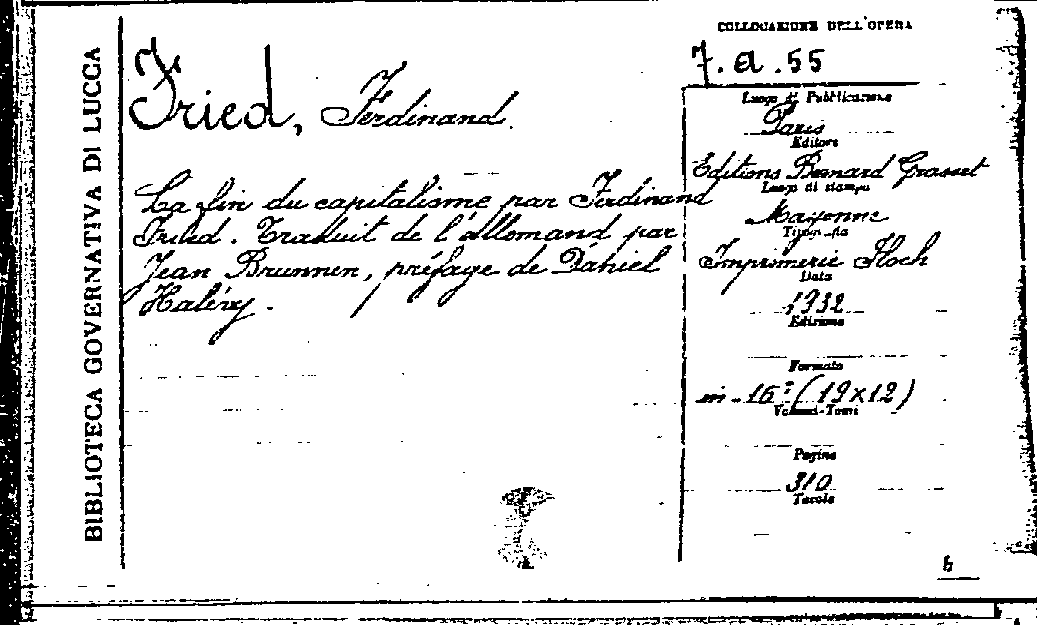 BIBLIOTECA GOVERNATIVA DI LUCCA
Fried, Ferdinand.
La fin du capitalisme par Ferdinand
Fried. Traduit de l'allemand par
Jean Brunnen, préface de Daniel
Halévy.
COLLOCAZIONE DELL'OPERA
7. a. 55
Luogo di Pubblicazione
Paris
Editore
Editions Bernard Grasset
Luogo di stampa
Mayenne
Tipografia
Imprimerie Floch
Data
1932
Edizione
Formato
in-16° (19x12)
Volumi-Tomi
Pagine
310
Tavole